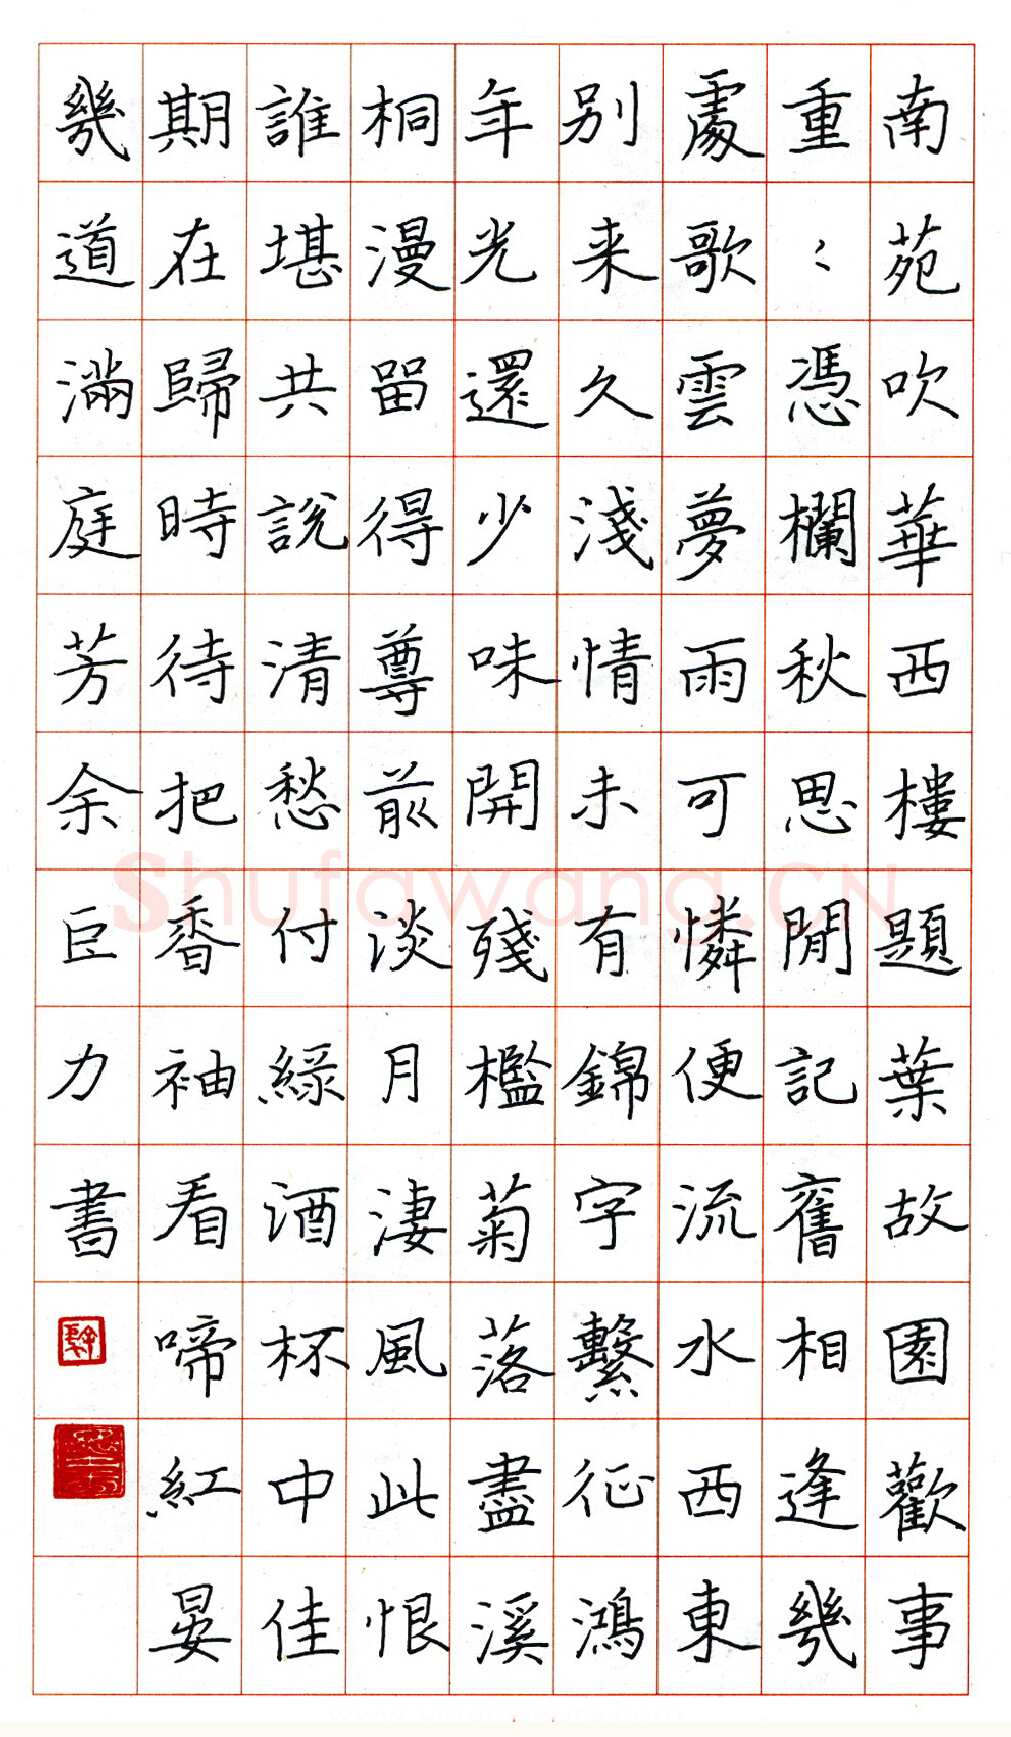 南苑吹華西樓題葉故園歡事
重〻憑欄秋思閒記舊相逢幾
處歌雲夢雨可憐便流水西東
别来久淺情未有錦字繫征鴻
年光還少味開殘檻菊落盡溪
桐漫留得尊前淡月淒風此恨
誰堪共說清愁付綠酒杯中佳
期在歸時待把香袖看啼紅晏
幾道滿庭芳余臣力書
Shufawang.CN